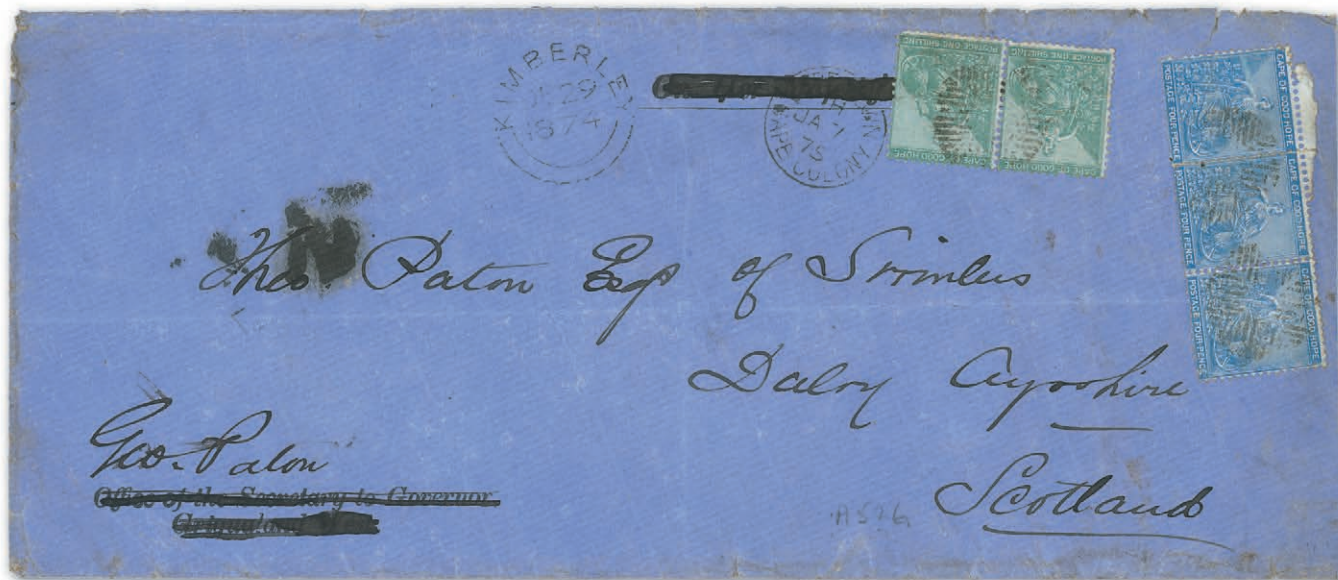 KIMBERLEY
29
1874
JA 7
75
CAPE COLONY
POSTAGE ONE SHILLING
CAPE OF GOOD HOPE
POSTAGE ONE SHILLING
CAPE OF GOOD HOPE
CAPE OF GOOD HOPE
POSTAGE FOUR PENCE
CAPE OF GOOD HOPE
POSTAGE FOUR PENCE
CAPE OF GOOD HOPE
POSTAGE FOUR PENCE
N
Theo. Paton Esqr of Swinlees
Dalry Ayrshire
Scotland
Geo. Paton
Office of the Secretary to Governor